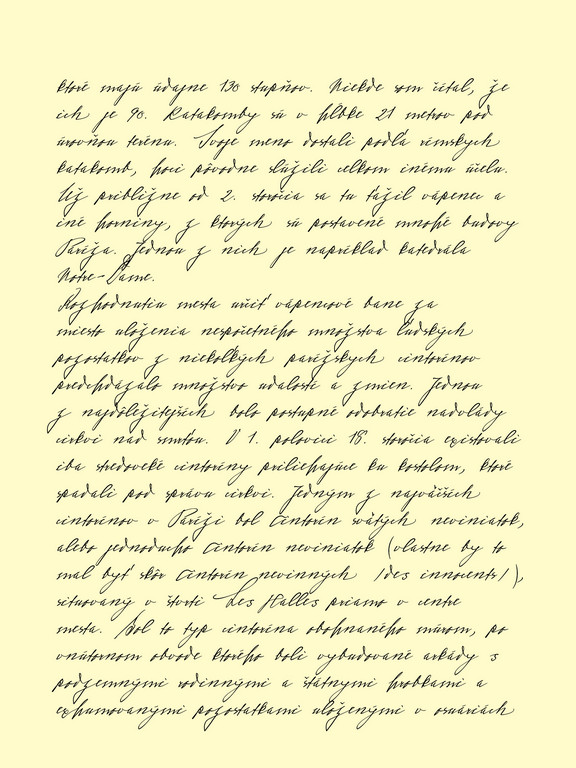 ktoré majú údajne 130 stupňov. Niekde som čítal, že
ich je 90. Katakomby sú v hĺbke 21 metrov pod
úrovňou terénu. Svoje meno dostali podľa rímskych
katakomb, hoci pôvodne slúžili celkom inému účelu.
Už približne od 2. storočia sa tu ťažil vápenec a
iné horniny, z ktorých sú postavené mnohé budovy
Paríža. Jednou z nich je napríklad katedrála
Notre-Dame.
Rozhodnutiu mesta určiť vápencové bane za
miesto uloženia nespočetného množstva ľudských
pozostatkov z niekoľkých parížskych cintorínov
predchádzalo množstvo udalostí a zmien. Jednou
z najdôležitejších bolo postupné odobratie nadvlády
cirkvi nad smrťou. V 1. polovici 18. storočia existovali
iba stredoveké cintoríny priliehajúce ku kostolom, ktoré
spadali pod správu cirkvi. Jedným z najväčších
cintorínov v Paríži bol Cintorín svätých neviniatok,
alebo jednoducho Cintorín neviniatok (vlastne by to
mal byť skôr Cintorín nevinných /des innocents/),
situovaný v štvrti Les Halles priamo v centre
mesta. Bol to typ cintorína obohnaného múrom, po
vnútornom obvode ktorého boli vybudované arkády s
podzemnými rodinnými a štátnymi hrobkami a
exhumovanými pozostatkami uloženými v osuáriách